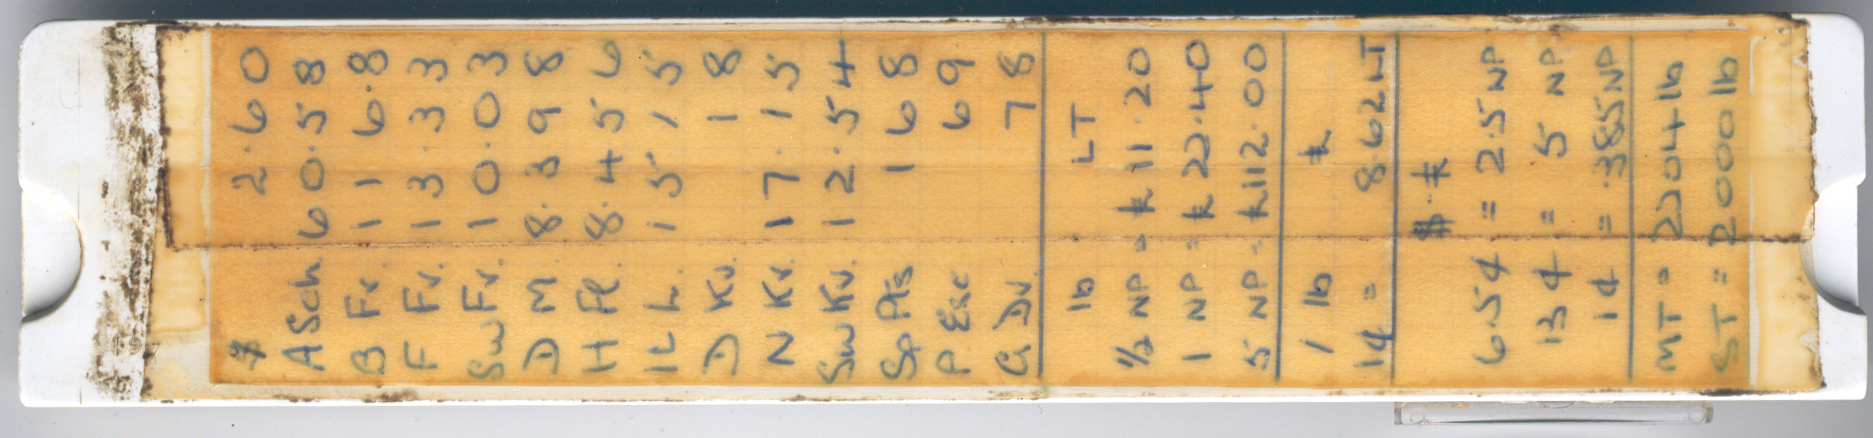 $ 2.60
A Sch. 60.58
B Fr. 116.8
F Fr. 13.33
Sw Fr. 10.03
D M. 8.398
H Fl. 8.456
It L. 1515
D Kr. 18
N Kr. 17.15
Sw Kr. 12.54
Sp Pts 168
P Esc 69
G Dr. 78
lb LT
½ NP = £11.20
1 NP = £22.40
5 NP = £112.00
/ lb £
1¢ = 8.62LT
$ £
6.5¢ = 2.5 NP
13¢ = 5 NP
1¢ = .385NP
MT = 2204 lb
ST = 2000 lb